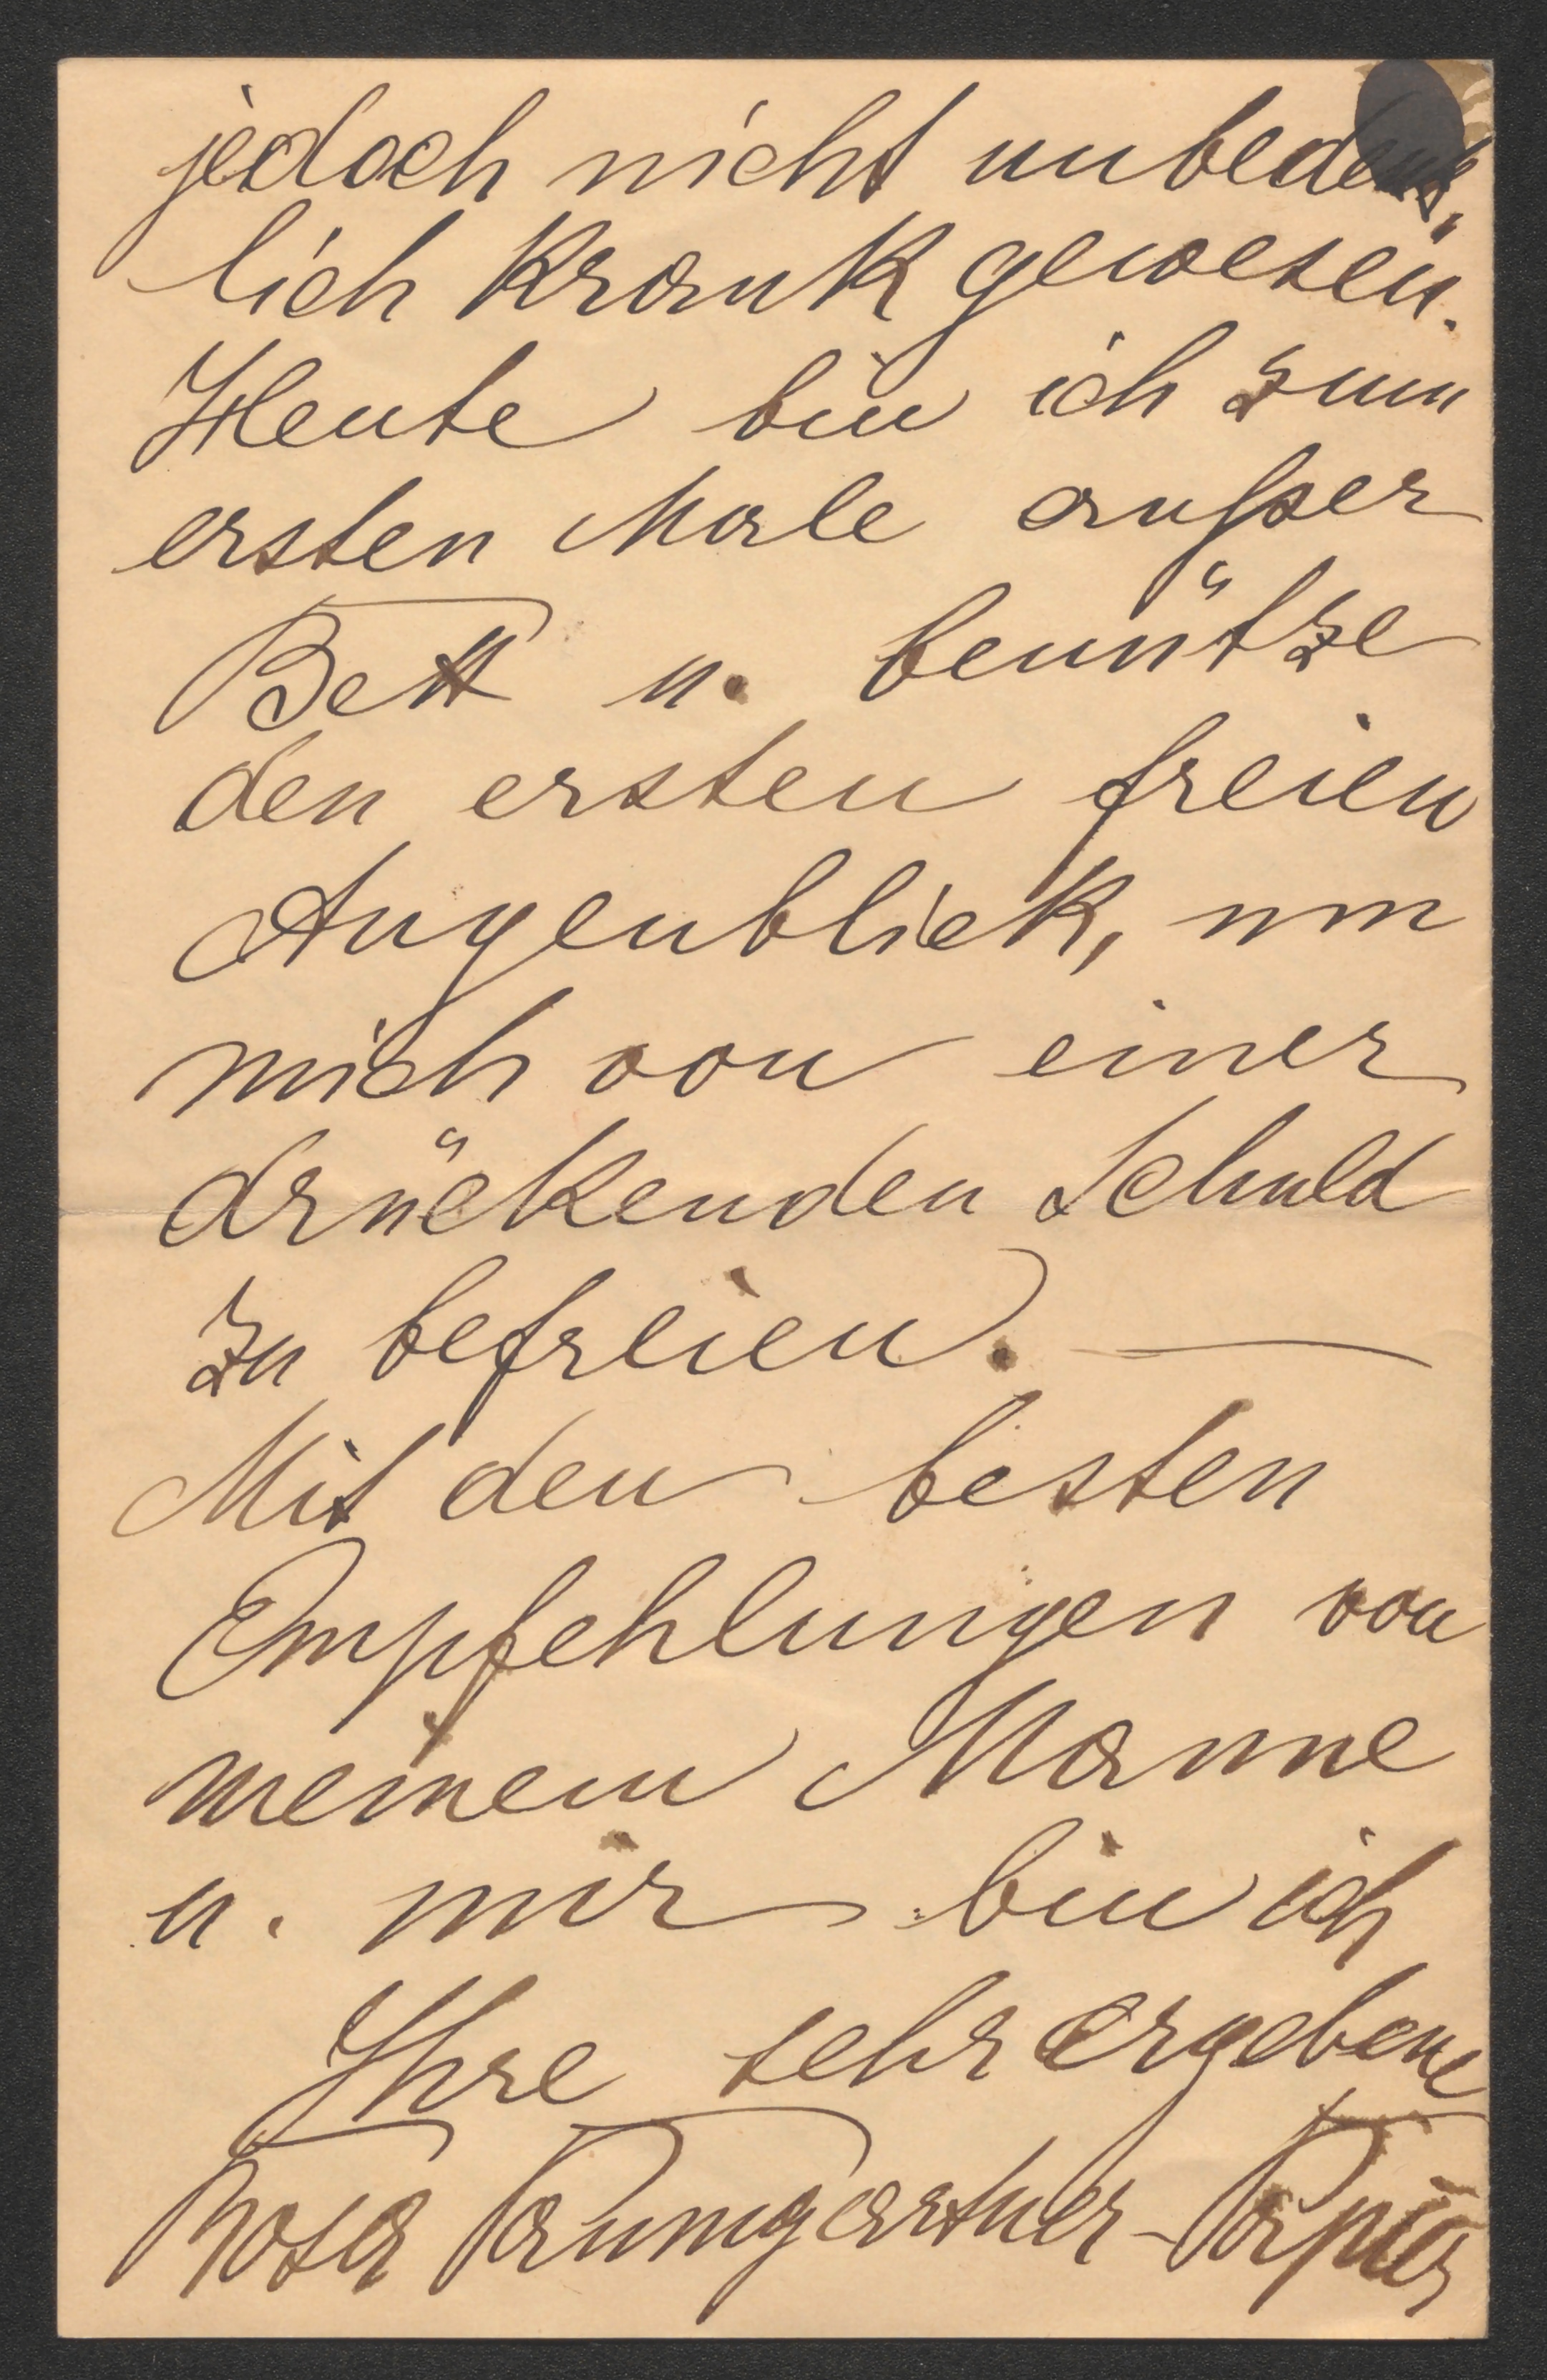 jedoch nicht unbedenk„
lich krank gewesen.
Heute bin ich zum
ersten Male außer
Bett u. benütze
den ersten freien
Augenblick, um
mich von einer
drückenden Schuld
zu befreien. —
Mit den besten
Empfehlungen von
meinem Manne
u. mir bin ich
Ihre sehr ergebene
Rosa Paumgartner-Papier